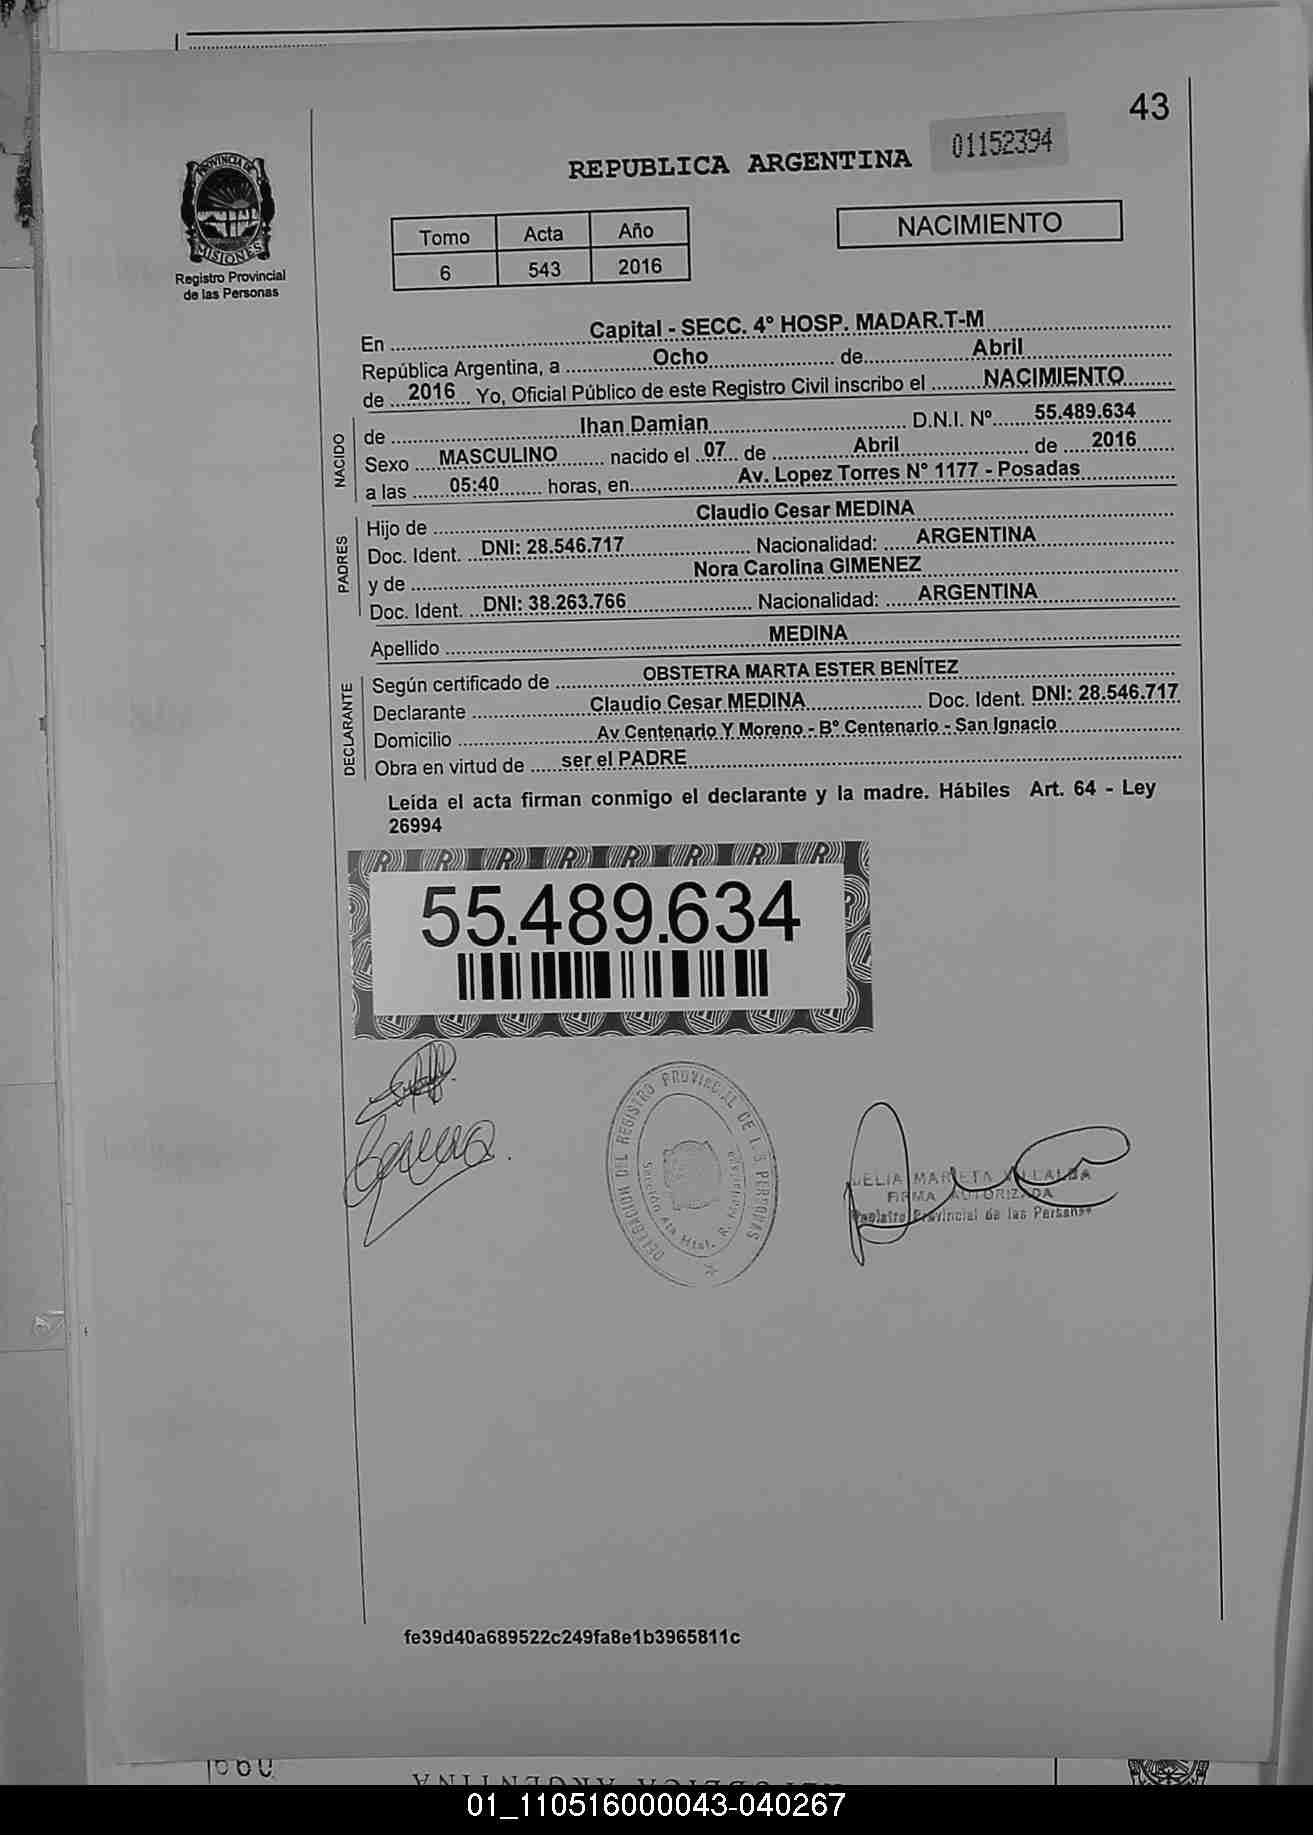 43
01152394
REPUBLICA ARGENTINA
PROVINCIA DE
MISIONES
Registro Provincial
de las Personas
Tomo Acta Año
6 543 2016
NACIMIENTO
En Capital - SECC. 4° HOSP. MADAR.T-M
República Argentina, a Ocho de Abril
de 2016 Yo, Oficial Público de este Registro Civil inscribo el NACIMIENTO
NACIDO
de Ihan Damian D.N.I. Nº 55.489.634
Sexo MASCULINO nacido el 07 de Abril de 2016
a las 05:40 horas, en Av. Lopez Torres N° 1177 - Posadas
PADRES
Hijo de Claudio Cesar MEDINA
Doc. Ident. DNI: 28.546.717 Nacionalidad: ARGENTINA
y de Nora Carolina GIMENEZ
Doc. Ident. DNI: 38.263.766 Nacionalidad: ARGENTINA
Apellido MEDINA
DECLARANTE
Según certificado de OBSTETRA MARTA ESTER BENÍTEZ
Declarante Claudio Cesar MEDINA Doc. Ident. DNI: 28.546.717
Domicilio Av Centenario Y Moreno - B° Centenario - San Ignacio
Obra en virtud de ser el PADRE
Leída el acta firman conmigo el declarante y la madre. Hábiles Art. 64 - Ley
26994
55.489.634
DELEGACION DEL REGISTRO PROVINCIAL DE LAS PERSONAS
Sección 4ta Htal. R.
DELIA MARIETA VILLALBA
FIRMA AUTORIZADA
Registro Provincial de las Personas
fe39d40a689522c249fa8e1b3965811c
01_110516000043-040267